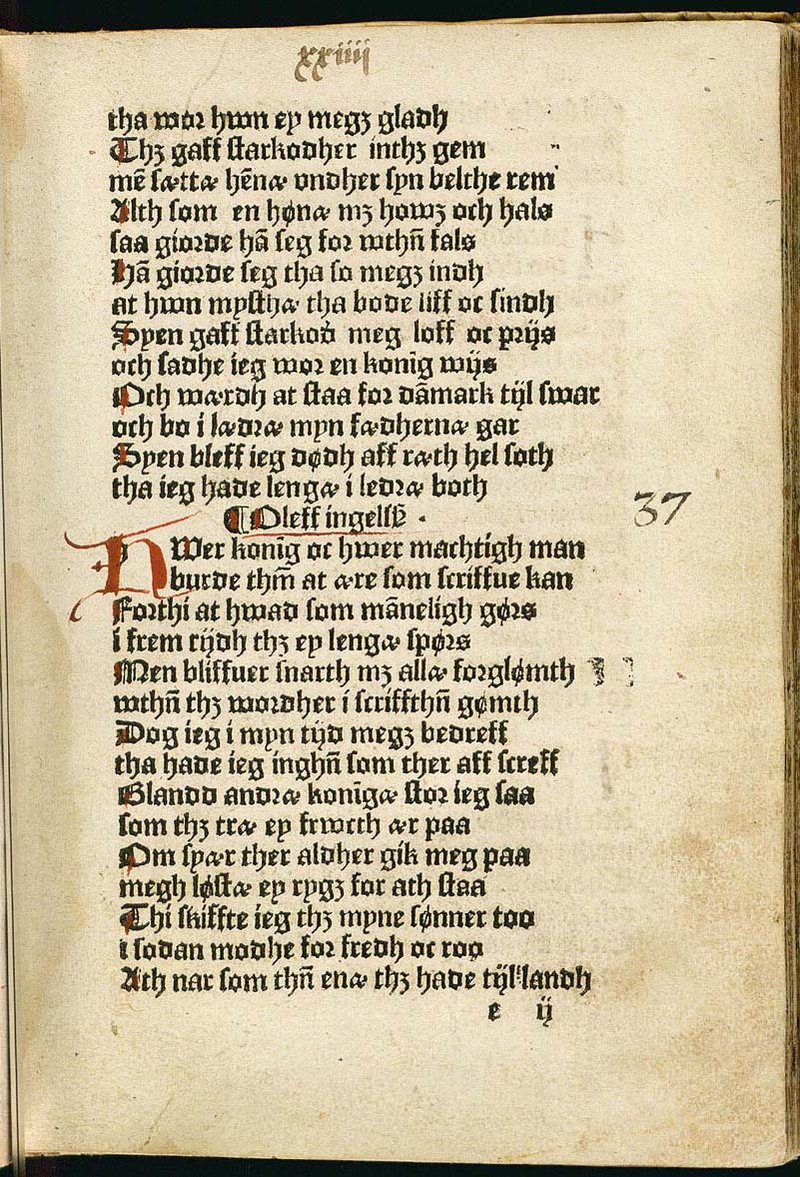 xxiiij
tha wor hwn ey megꝫ gladh
Thꝫ gaff starkodher inthꝫ gem
mē sættæ hēnæ vndher syn belthe rem
Alth som en hønæ mꝫ howꝫ och hals
saa giorde hā seg for wthn̄ fals
Hā giorde seg tha so megꝫ indh
at hwn mysthæ tha bode liff oc sindh
Syen gaff starkod meg loff oc prijs
och sadhe ieg wor en konīg wijs
Och wærdh at staa for dāmark tijl swar
och bo i lædræ myn fædhernæ gar
Syen bleff ieg dødh aff ræth hel soth
tha ieg hade lengæ i ledræ both
¶ Oleff ingelß
37
HWer konīg oc hwer machtigh man
burde thm̄ at ære som scriffue kan
Forthi at hwad som māneligh gørs
i frem tijdh thꝫ ey lengæ spørs
Men bliffuer snarth mꝫ allæ forglømth
wthn̄ thꝫ wordher i scriffthn̄ gømth
Dog ieg i myn tijd megꝫ bedreff
tha hade ieg inghn̄ som ther aff screff
Blandd andræ konīgæ stor ieg saa
som thꝫ træ ey frwcth ær paa
Om syær ther aldher gik meg paa
megh løstæ ey rygꝫ for ath staa
Thi skiffte ieg thꝫ myne sønner too
i sodan modhe for fredh oc roo
Ath nar som thn̄ enæ thꝫ hade tijl landh
e ij